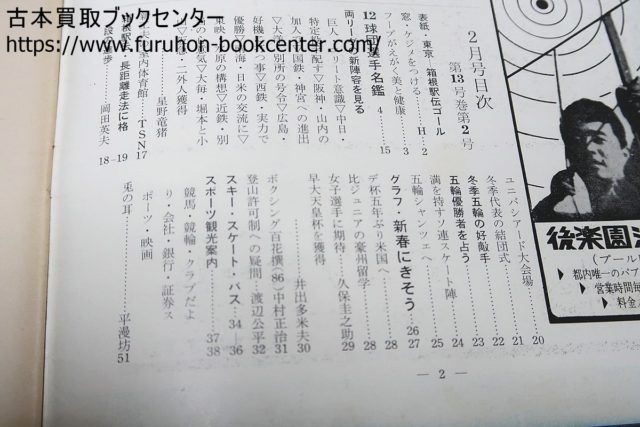 古本買取ブックセンター
https://www.furuhon-bookcenter.com/
2月号目次
第13号巻第2号
表紙・東京 箱根駅伝ゴール
窓・ケジメをつける……H・2
フープがえがく美と健康……3
12球団選手名鑑……4
15
両リーグの新陣容を見る
巨人・エリート意識▽中日・
▽阪神・山内の
加入▽国鉄・神宮への進出
▽大洋・別所の号令▽広島・
▽西鉄・実力で
▽近鉄・別
優勝▽南海・日米の交流に▽
▽大毎・堀本と小
二外人獲得
星野竜猪
室内体育館……TSN17
長距離走法に格
岡田英夫
18—19
ユニバシアード大会場……20
冬季代表の結団式……21
冬季五輪の好敵手……22
五輪優勝者を占う……23
満を持すソ連スケート陣……24
五輪シャンツェへ……25
グラフ・新春にきそう……26
27
デ杯五年ぶり米国へ……28
比ジュニアの豪州留学……28
女子選手に期待……久保圭之助29
早大天皇杯を獲得
井出多米夫30
ボクシング百花撰(86)中村正治31
登山許可制への疑問…渡辺公平32
スキー・スケート・バス……34—36
スポーツ観光案内……37
38
競馬・競輪・クラブだよ
り・会社・銀行・証券ス
ポーツ・映画
兎の耳……平漫坊51
— 2 —
後楽園
(プール
都内唯一のバブ
営業時間毎
料金